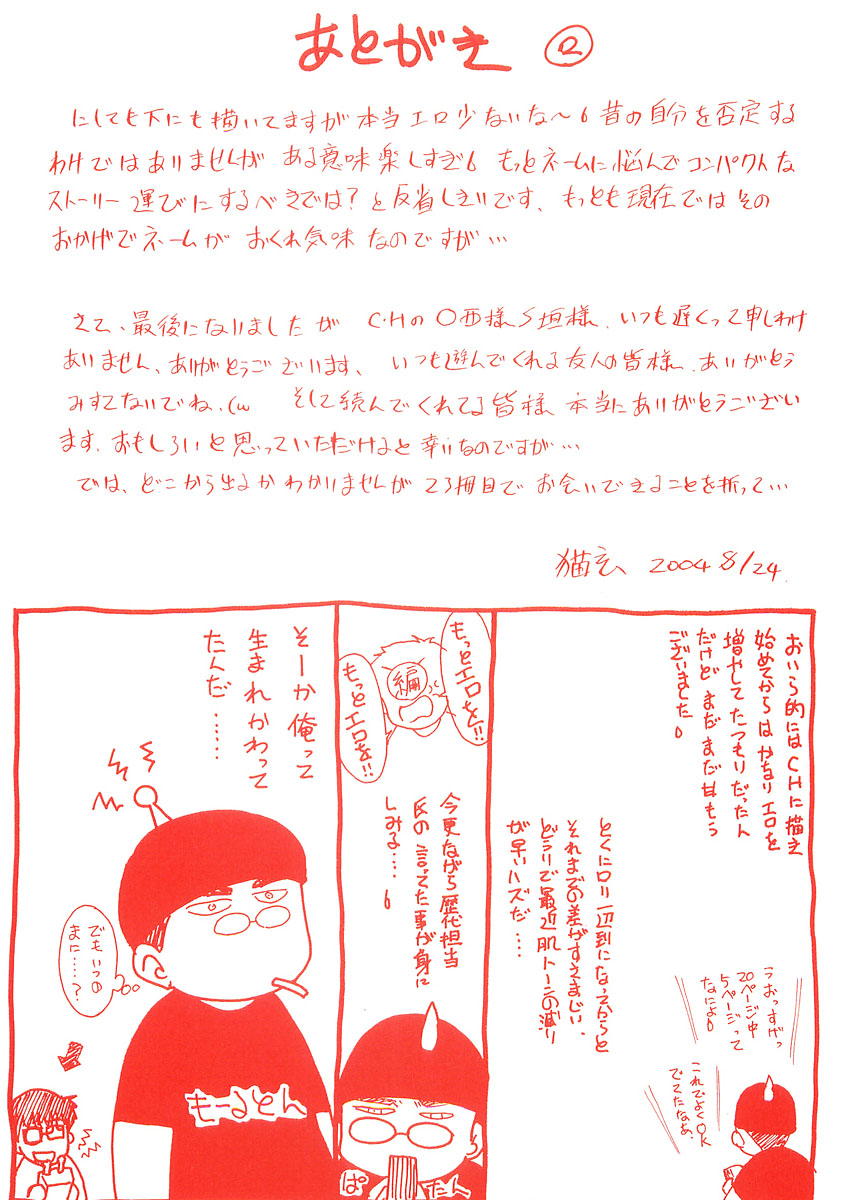 あとがき ②
にしても下にも描いてますが本当エロ少ないな〜 昔の自分を否定する
わけではありませんが ある意味楽しすぎ もっとネームに悩んでコンパクトな
ストーリー運びにするべきでは?と反省しきりです、もっとも現在ではその
おかげでネームが おくれ気味 なのですが…
さて、最後になりましたが C・Hの〇西様 S垣様、いつも遅くって申しわけ
ありません、ありがとうございます、いつも遊んでくれる友人の皆様、ありがとう
みすてないでね、(w そして読んでくれてる皆様 本当にありがとうござい
ます、おもしろいと思っていただけると幸いなのですが…
では、どこから出るかわかりませんが 23冊目で お会いできることを祈って…
猫玄 2004 8/24
おいら的にはCHに描き
始めてからはかなりエロを
増やしてたつもりだったん
だけど まだまだ甘もう
ございました
うおっすげっ
20ページ中
5ページって
なによ
これでよくOK
でてたなぁ、
とくにロリ一辺到になってからと
それまでの差がすさまじい、
どうりで最近肌トーンの減り
が早いハズだ……
もっとエロを!!
編
もっとエロを!!
今更ながら歴代担当
氏の言ってた事が身に
しみる……
ぱたん
そーか俺って
生まれかわって
たんだ……
でもいつの
まに……?
もーるとん